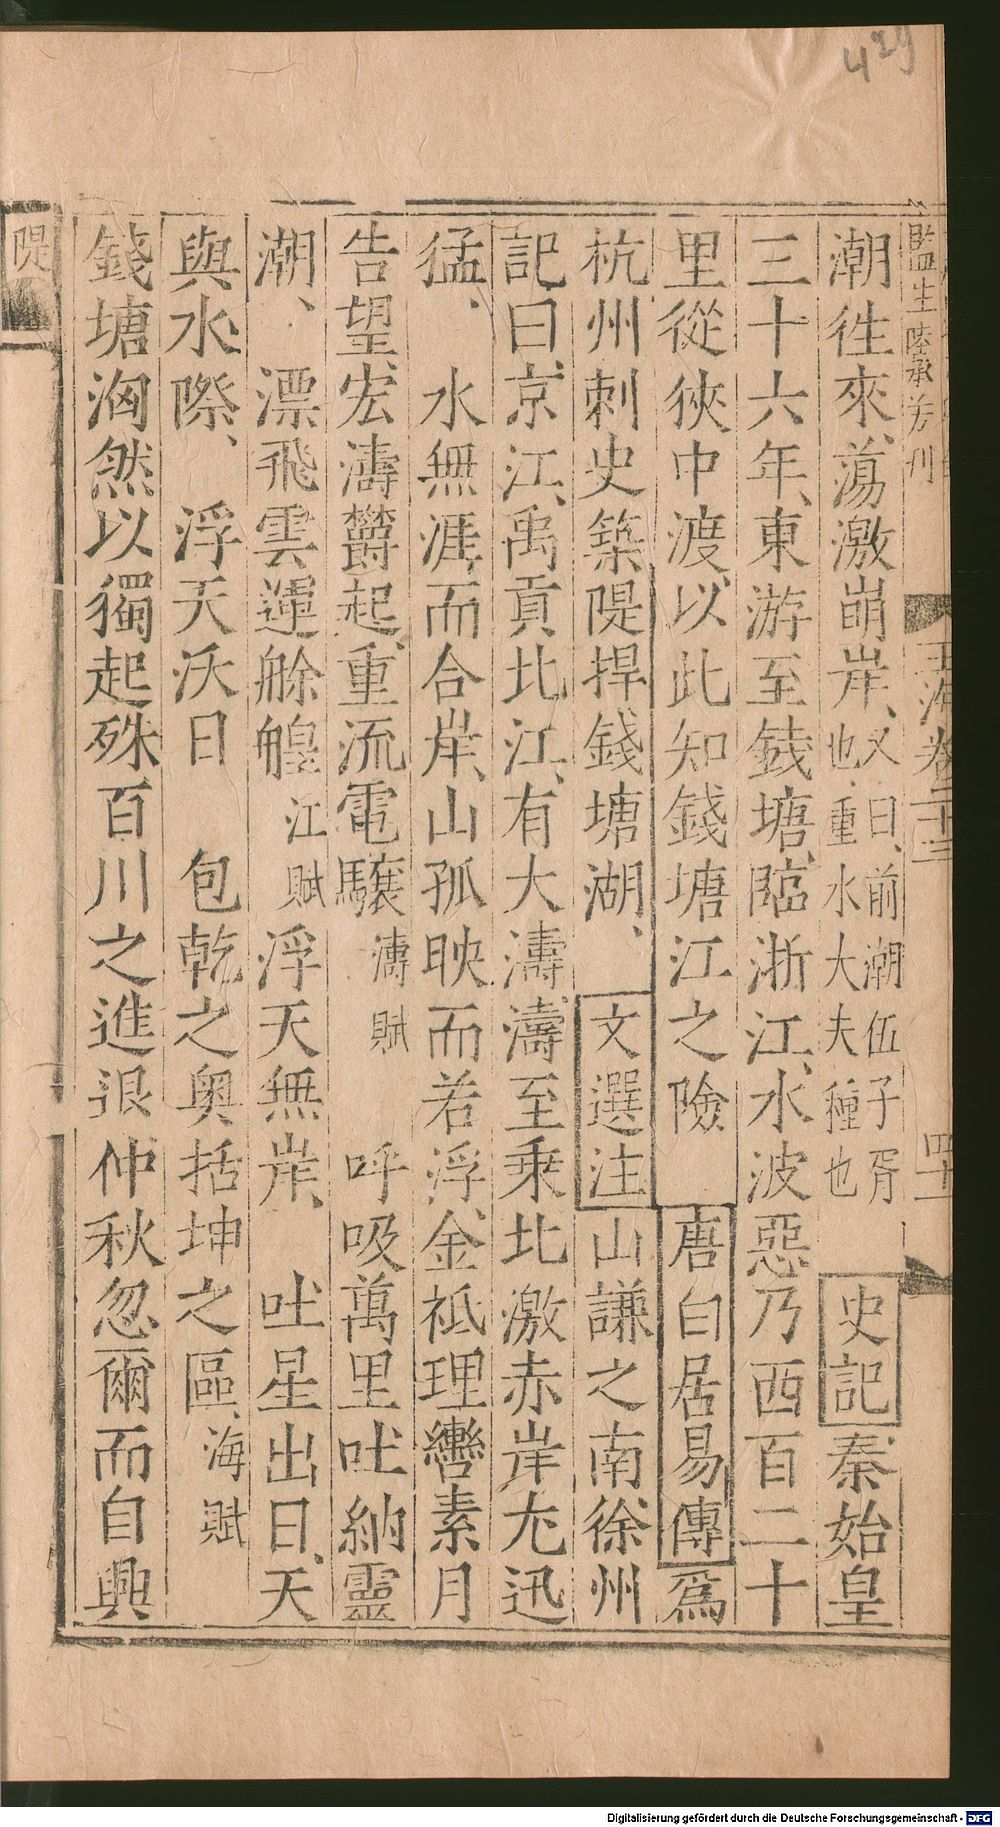 429
監生陸承芳刊
玉海卷二十三
四十
潮徃來蕩激崩岸、又曰、前潮伍子胥也、重水大夫種也 史記秦始皇
三十六年、東游至錢塘、臨浙江、水波惡乃西百二十
里從狹中渡、以此知錢塘江之險 唐白居易傳爲
杭州刺史築隄捍錢塘湖、 文選注山謙之南徐州
記曰、京江、禹貢北江、有大濤濤至乗北激赤岸尤迅
猛、 水無涯、而合岸、山孤映而若浮、金祗理轡素月
告望、宏濤欝起、重流電驤濤賦 呼吸萬里吐納靈
潮、 漂飛雲運艅艎江賦 浮天無岸、 吐星出日、天
與水際、 浮天沃日 包乾之奥括坤之區、海賦
錢塘洶然以獨起殊百川之進退仲秋忽爾而自興
隄
Digitalisierung gefördert durch die Deutsche Forschungsgemeinschaft - DFG